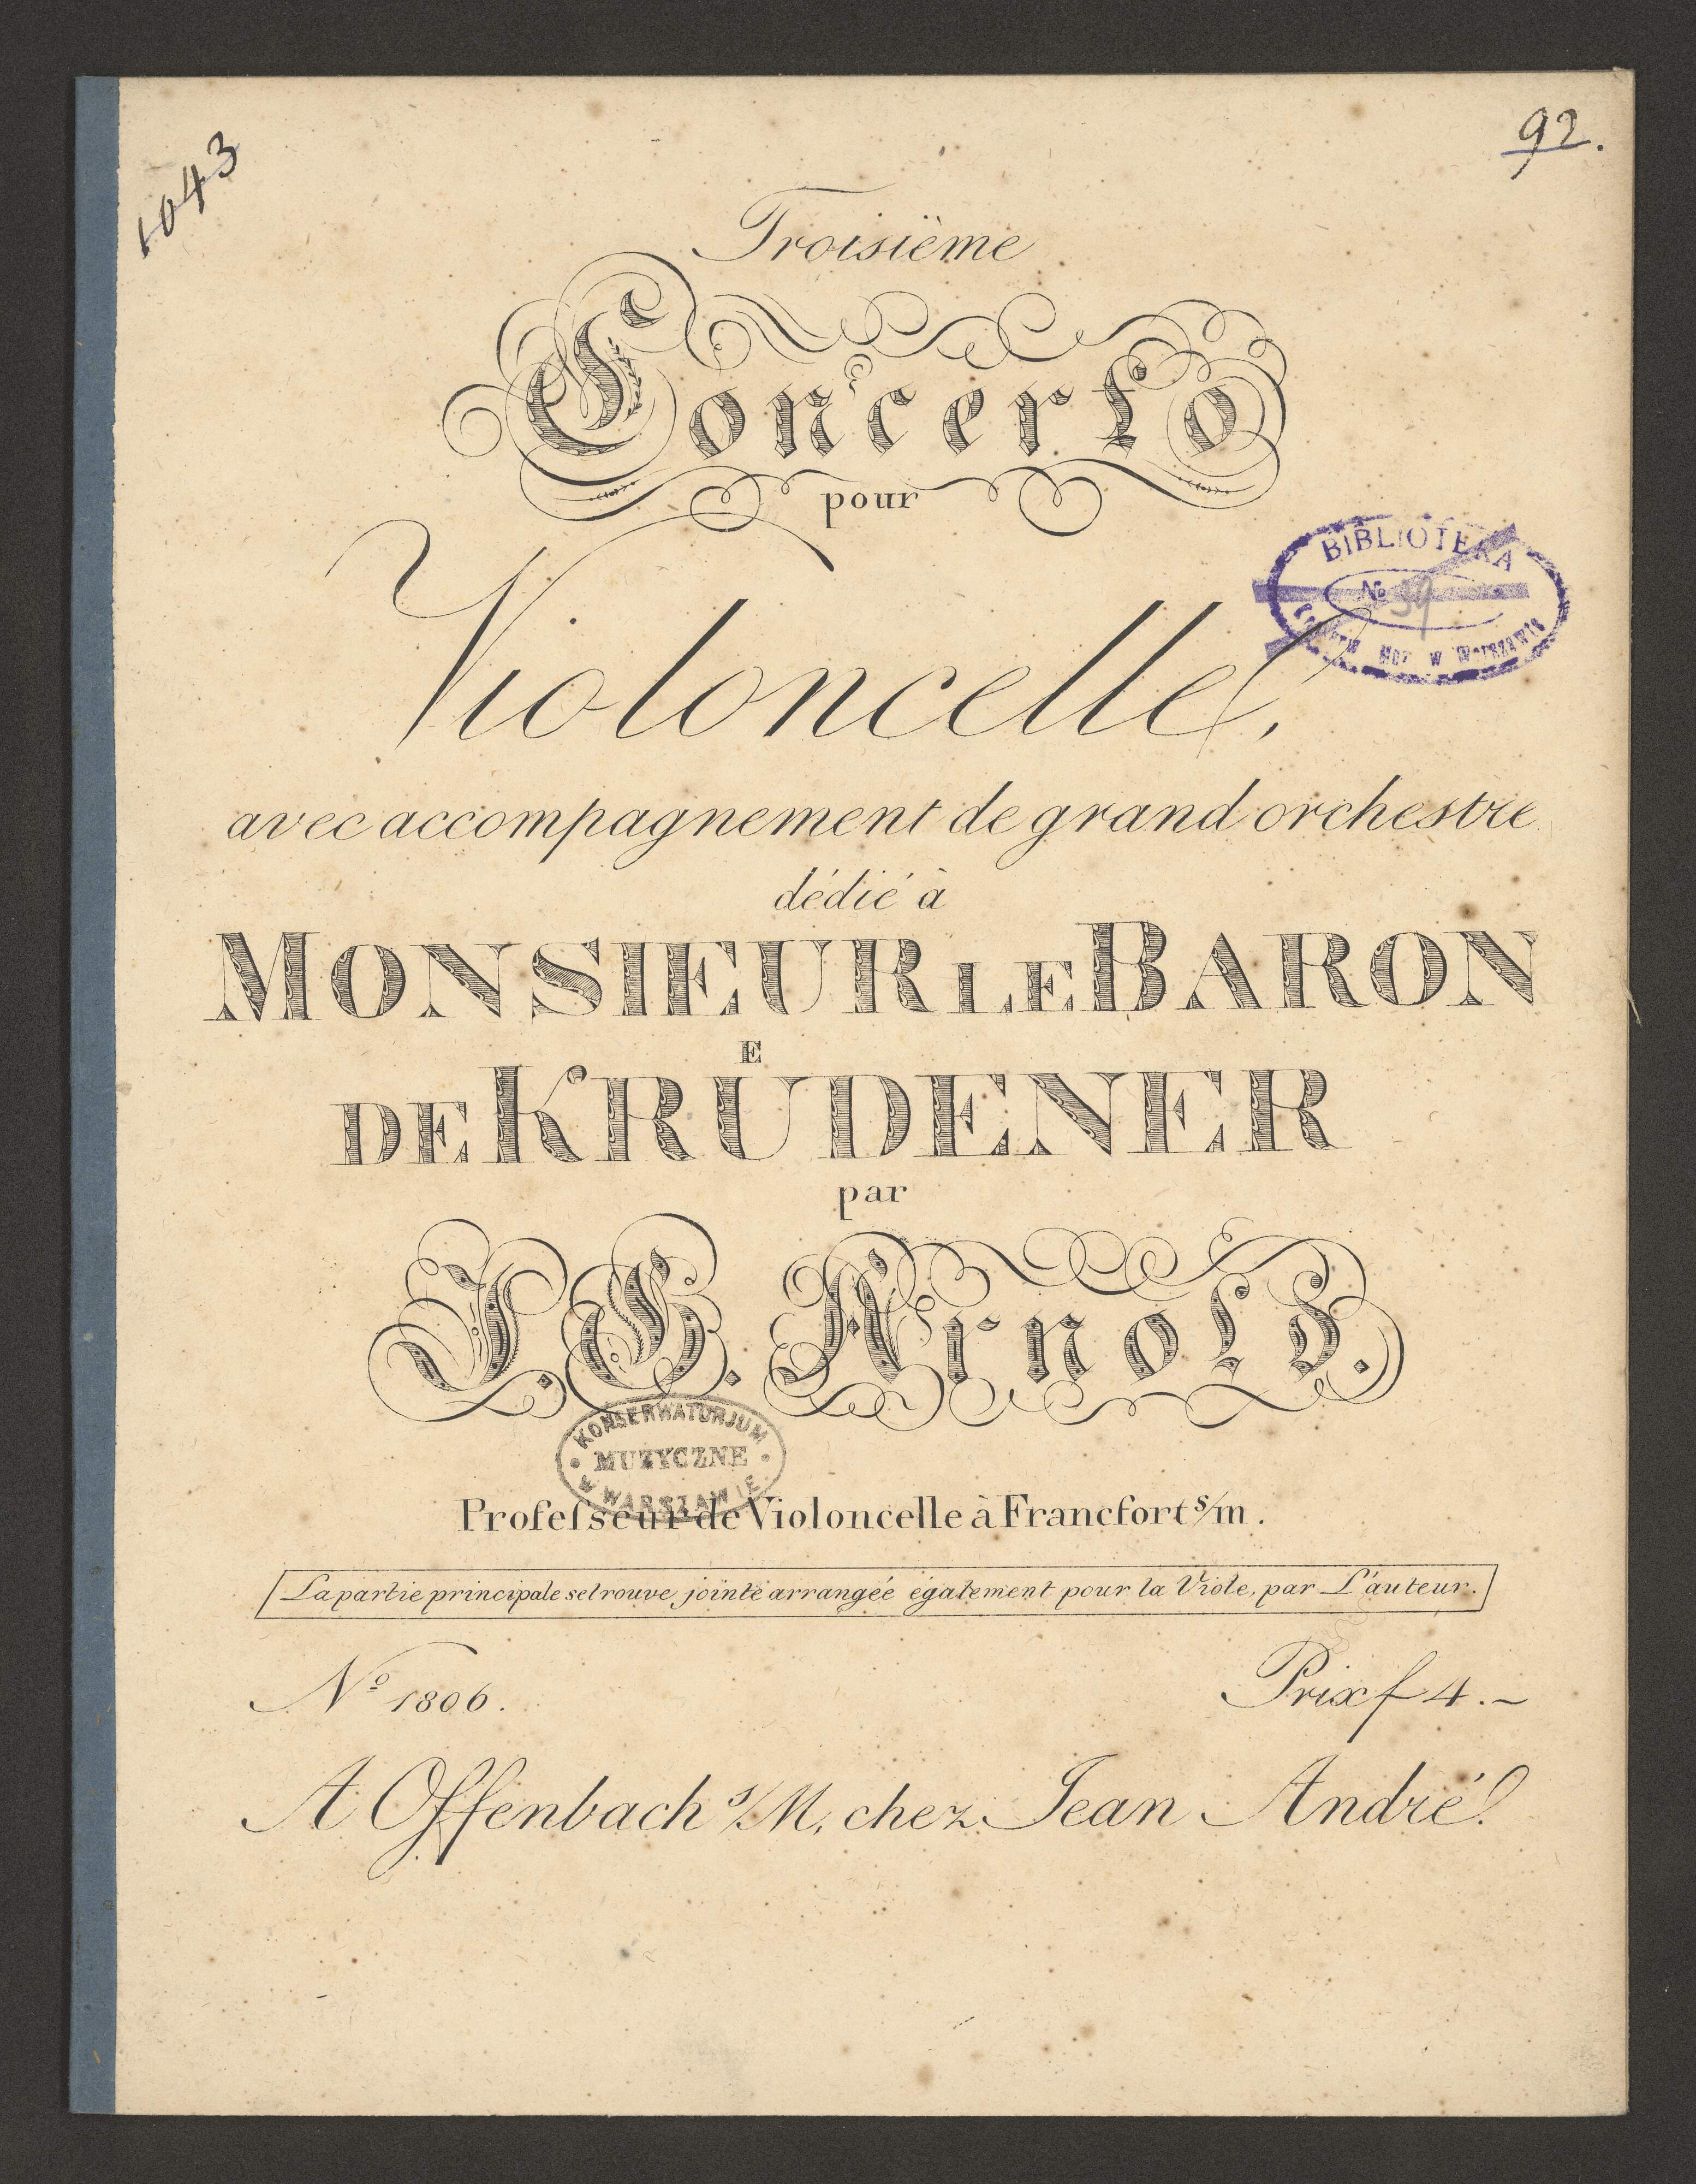 1043
92.
Troisiëme
Concerto
pour
Violoncelle,
avec accompagnement de grand orchestre
dédié à
MONSIEUR LE BARON
DE KRUͤDENER
par
J. G. Arnold.
BIBLIOTEKA
№ 39
W WARSZAWIE
KONSERWATORJUM
MUZYCZNE
W WARSZAWIE
Profeſseur de Violoncelle à Francfort s/m.
La partie principale se trouve jointe arrangée également pour la Viole, par L'auteur.
Nº 1806.
Prix f 4.-
A Offenbach s/M, chez Jean André.